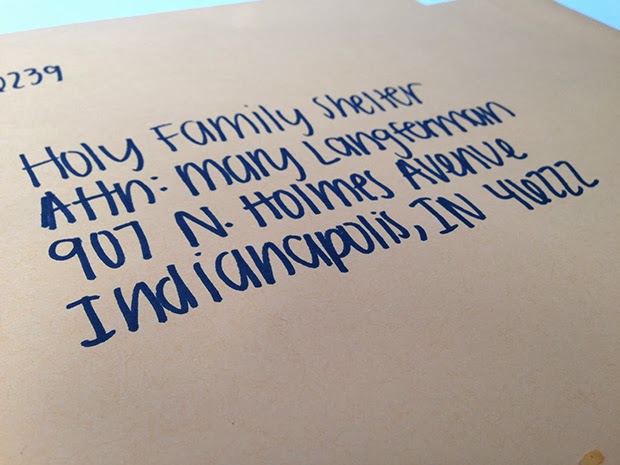 239
Holy Family Shelter
Attn: Mary Langferman
907 N. Holmes Avenue
Indianapolis, IN 46222